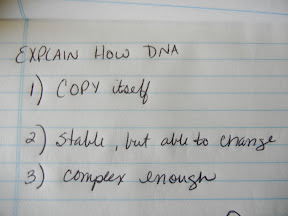 EXPLAIN HOW DNA
1) COPY itself
2) Stable, but able to change
3) complex enough